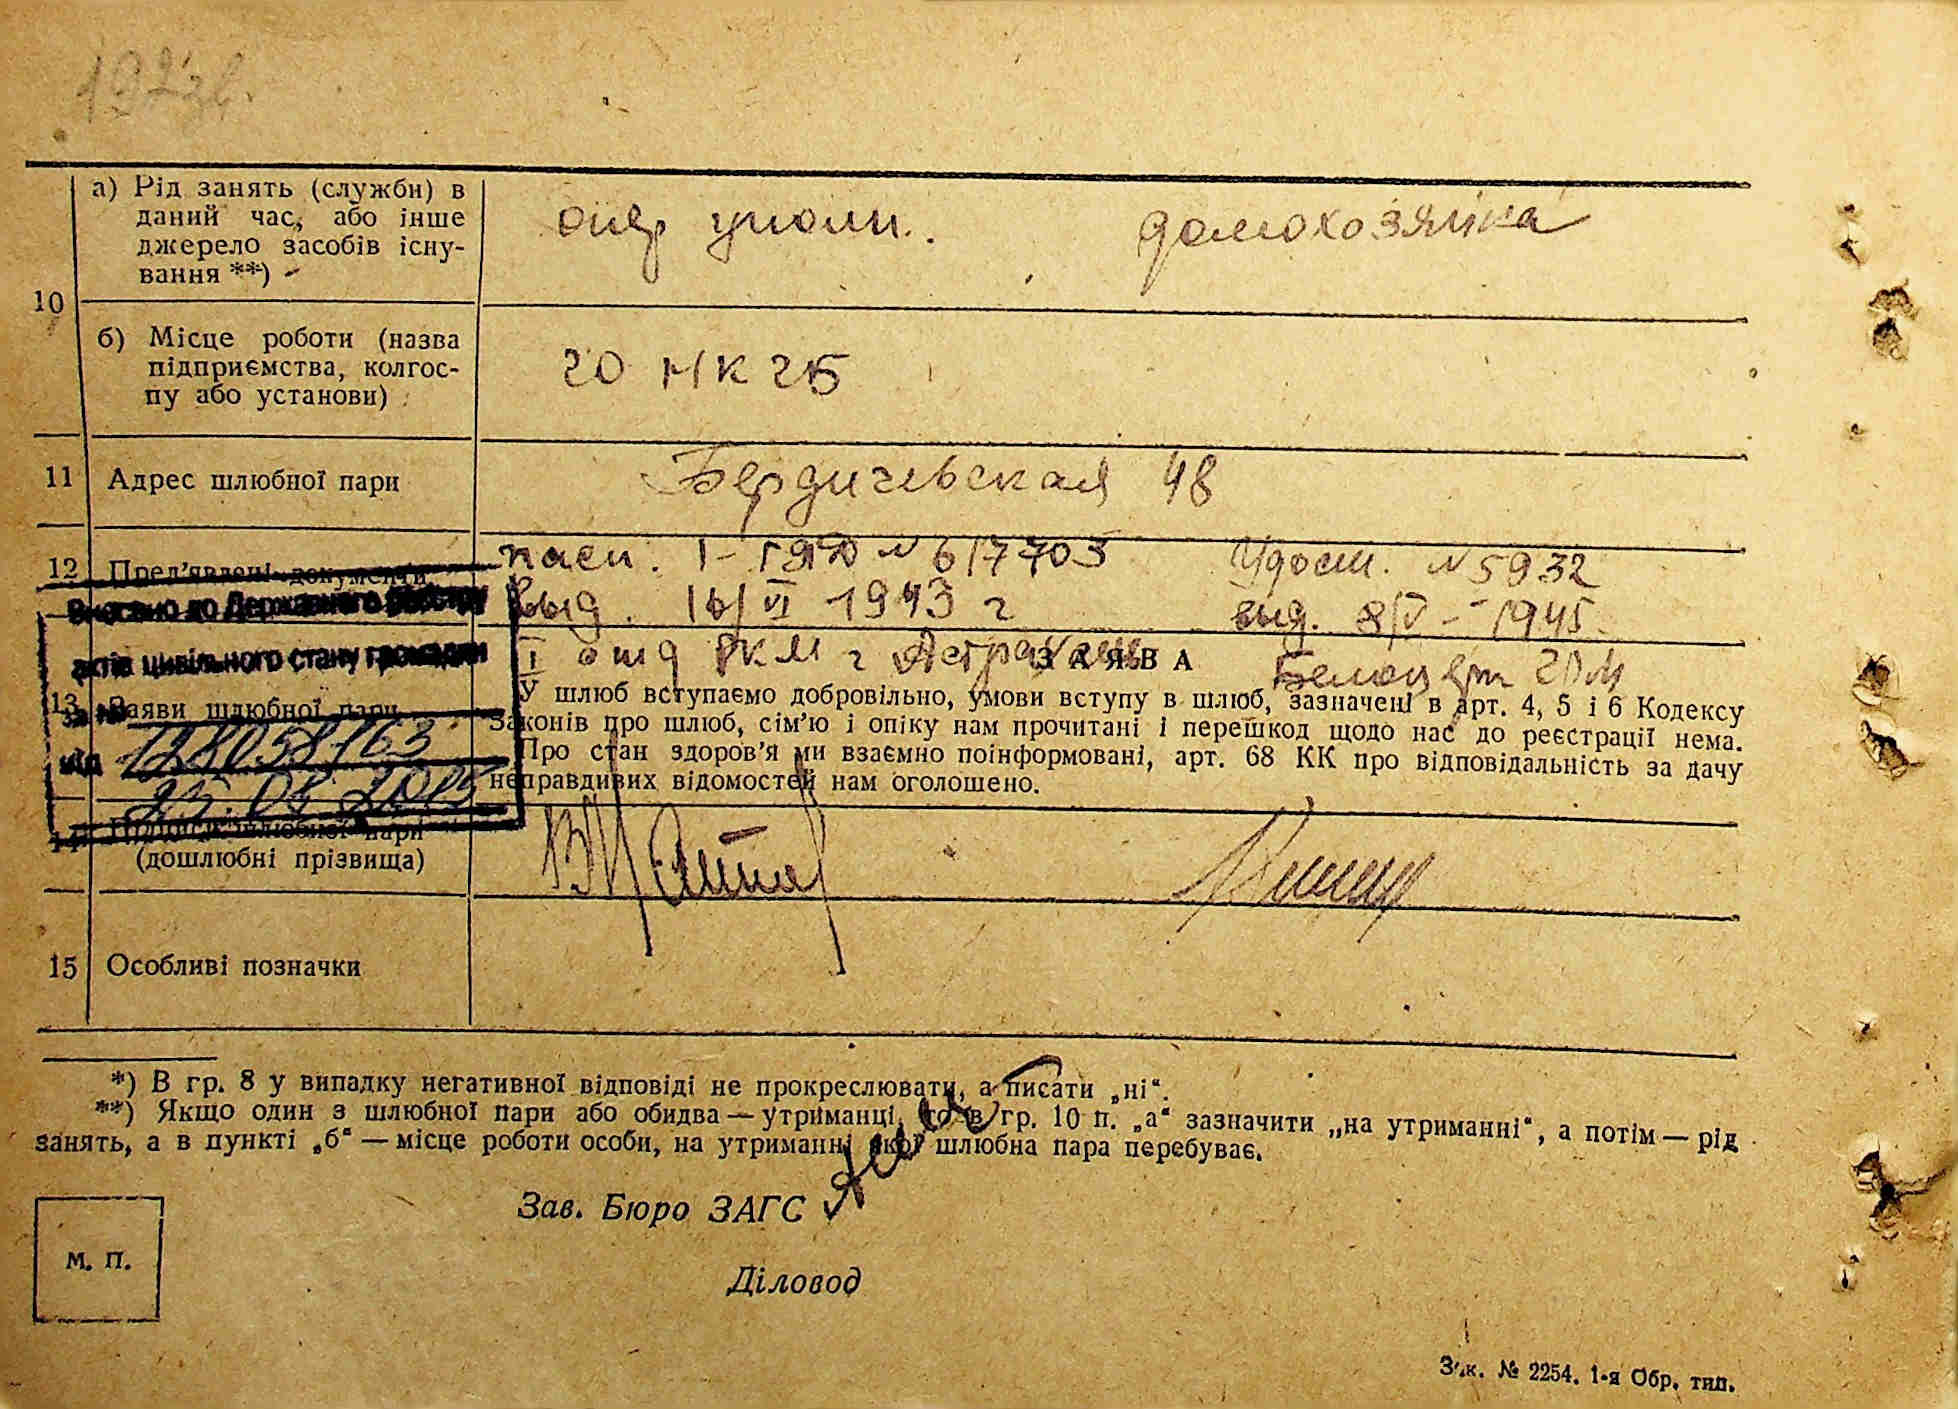 1923г.
а) Рід занять (служби) в
даний час, або інше
джерело засобів існу-
вання **)
опер уполн. домохозяйка
10
б) Місце роботи (назва
підприємства, колгос-
пу або установи)
ГО НКГБ
11 Адрес шлюбної пари Бердичевская 48
12 Пред'явлені документи
пасп. I-ГЯЮ № 617703 Удост. № 5932
выд. 16/VI 1943 г выд. 8/V - 1945
I отд РКМ г Астрахань
Внесено до Державного реєстру
актів цивільного стану громадян
за №
від 23.04.2013
13 Заяви шлюбної пари
ЗАЯВА
У шлюб вступаємо добровільно, умови вступу в шлюб, зазначені в арт. 4, 5 і 6 Кодексу
Законів про шлюб, сім'ю і опіку нам прочитані і перешкод щодо нас до реєстрації нема.
Про стан здоров'я ми взаємно поінформовані, арт. 68 КК про відповідальність за дачу
неправдивих відомостей нам оголошено.
14 Підписи шлюбної пари
(дошлюбні прізвища)
15 Особливі позначки
*) В гр. 8 у випадку негативної відповіді не прокреслювати, а писати „ні“.
**) Якщо один з шлюбної пари або обидва — утриманці, то в гр. 10 п. „а“ зазначити „на утриманні“, а потім — рід
занять, а в пункті „б“ — місце роботи особи, на утриманні якої шлюбна пара перебуває.
Зав. Бюро ЗАГС
М. П.
Діловод
Зак. № 2254. 1-я Обр. тип.